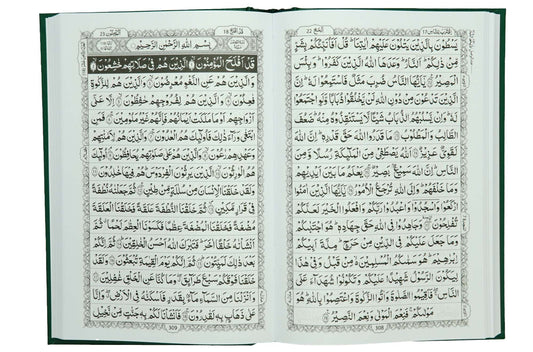 اقترب للناس ١٧
الحج 22
يَسْطُوْنَ بِالَّذِيْنَ يَتْلُوْنَ عَلَيْهِمْ اٰيٰتِنَا ؕ قُلْ اَفَاُنَبِّئُكُمْ بِشَرٍّ
مِّنْ ذٰلِكُمْ ؕ اَلنَّارُ ؕ وَعَدَهَا اللّٰهُ الَّذِيْنَ كَفَرُوْا ؕ وَبِئْسَ
الْمَصِيْرُ ۝ يٰۤاَيُّهَا النَّاسُ ضُرِبَ مَثَلٌ فَاسْتَمِعُوْا لَهٗ ؕ اِنَّ
الَّذِيْنَ تَدْعُوْنَ مِنْ دُوْنِ اللّٰهِ لَنْ يَّخْلُقُوْا ذُبَابًا وَّلَوِ اجْتَمَعُوْا
لَهٗ ؕ وَاِنْ يَّسْلُبْهُمُ الذُّبَابُ شَيْـًٔا لَّا يَسْتَنْقِذُوْهُ مِنْهُ ؕ ضَعُفَ
الطَّالِبُ وَالْمَطْلُوْبُ ۝ مَا قَدَرُوا اللّٰهَ حَقَّ قَدْرِهٖ ؕ اِنَّ اللّٰهَ
لَقَوِيٌّ عَزِيْزٌ ۝ اَللّٰهُ يَصْطَفِيْ مِنَ الْمَلٰٓئِكَةِ رُسُلًا وَّمِنَ
النَّاسِ ؕ اِنَّ اللّٰهَ سَمِيْعٌۢ بَصِيْرٌ ۝ يَعْلَمُ مَا بَيْنَ اَيْدِيْهِمْ
وَمَا خَلْفَهُمْ ؕ وَاِلَى اللّٰهِ تُرْجَعُ الْاُمُوْرُ ۝ يٰۤاَيُّهَا الَّذِيْنَ اٰمَنُوا
ارْكَعُوْا وَاسْجُدُوْا وَاعْبُدُوْا رَبَّكُمْ وَافْعَلُوا الْخَيْرَ لَعَلَّكُمْ
تُفْلِحُوْنَ ۝ وَجَاهِدُوْا فِي اللّٰهِ حَقَّ جِهَادِهٖ ؕ هُوَ اجْتَبٰىكُمْ
وَمَا جَعَلَ عَلَيْكُمْ فِي الدِّيْنِ مِنْ حَرَجٍ ؕ مِلَّةَ اَبِيْكُمْ
اِبْرٰهِيْمَ ؕ هُوَ سَمّٰىكُمُ الْمُسْلِمِيْنَ ۙ مِنْ قَبْلُ وَفِيْ هٰذَا
لِيَكُوْنَ الرَّسُوْلُ شَهِيْدًا عَلَيْكُمْ وَتَكُوْنُوْا شُهَدَآءَ عَلَى
النَّاسِ ۚ فَاَقِيْمُوا الصَّلٰوةَ وَاٰتُوا الزَّكٰوةَ وَاعْتَصِمُوْا بِاللّٰهِ ؕ هُوَ
مَوْلٰىكُمْ ۚ فَنِعْمَ الْمَوْلٰى وَنِعْمَ النَّصِيْرُ ۝
308
قد افلح 18
المؤمنون 23
بِسْمِ اللّٰهِ الرَّحْمٰنِ الرَّحِيْمِ
قَدْ اَفْلَحَ الْمُؤْمِنُوْنَ ۝ الَّذِيْنَ هُمْ فِيْ صَلَاتِهِمْ خٰشِعُوْنَ ۝
وَالَّذِيْنَ هُمْ عَنِ اللَّغْوِ مُعْرِضُوْنَ ۝ وَالَّذِيْنَ هُمْ لِلزَّكٰوةِ
فٰعِلُوْنَ ۝ وَالَّذِيْنَ هُمْ لِفُرُوْجِهِمْ حٰفِظُوْنَ ۝ اِلَّا عَلٰٓى
اَزْوَاجِهِمْ اَوْ مَا مَلَكَتْ اَيْمَانُهُمْ فَاِنَّهُمْ غَيْرُ مَلُوْمِيْنَ ۝ فَمَنِ
ابْتَغٰى وَرَآءَ ذٰلِكَ فَاُولٰٓئِكَ هُمُ الْعٰدُوْنَ ۝ وَالَّذِيْنَ هُمْ لِاَمٰنٰتِهِمْ
وَعَهْدِهِمْ رٰعُوْنَ ۝ وَالَّذِيْنَ هُمْ عَلٰى صَلَوٰتِهِمْ يُحَافِظُوْنَ ۝ اُولٰٓئِكَ
هُمُ الْوٰرِثُوْنَ ۝ الَّذِيْنَ يَرِثُوْنَ الْفِرْدَوْسَ ؕ هُمْ فِيْهَا خٰلِدُوْنَ ۝
وَلَقَدْ خَلَقْنَا الْاِنْسَانَ مِنْ سُلٰلَةٍ مِّنْ طِيْنٍ ۝ ثُمَّ جَعَلْنٰهُ نُطْفَةً
فِيْ قَرَارٍ مَّكِيْنٍ ۝ ثُمَّ خَلَقْنَا النُّطْفَةَ عَلَقَةً فَخَلَقْنَا الْعَلَقَةَ
مُضْغَةً فَخَلَقْنَا الْمُضْغَةَ عِظٰمًا فَكَسَوْنَا الْعِظٰمَ لَحْمًا ۗ ثُمَّ
اَنْشَاْنٰهُ خَلْقًا اٰخَرَ ؕ فَتَبٰرَكَ اللّٰهُ اَحْسَنُ الْخٰلِقِيْنَ ۝ ثُمَّ اِنَّكُمْ
بَعْدَ ذٰلِكَ لَمَيِّتُوْنَ ۝ ثُمَّ اِنَّكُمْ يَوْمَ الْقِيٰمَةِ تُبْعَثُوْنَ ۝ وَلَقَدْ
خَلَقْنَا فَوْقَكُمْ سَبْعَ طَرَآئِقَ ۖ وَمَا كُنَّا عَنِ الْخَلْقِ غٰفِلِيْنَ ۝
وَاَنْزَلْنَا مِنَ السَّمَآءِ مَآءًۢ بِقَدَرٍ فَاَسْكَنّٰهُ فِي الْاَرْضِ ۖ وَاِنَّا
عَلٰى ذَهَابٍۭ بِهٖ لَقٰدِرُوْنَ ۝ فَاَنْشَاْنَا لَكُمْ بِهٖ جَنّٰتٍ مِّنْ نَّخِيْلٍ
309